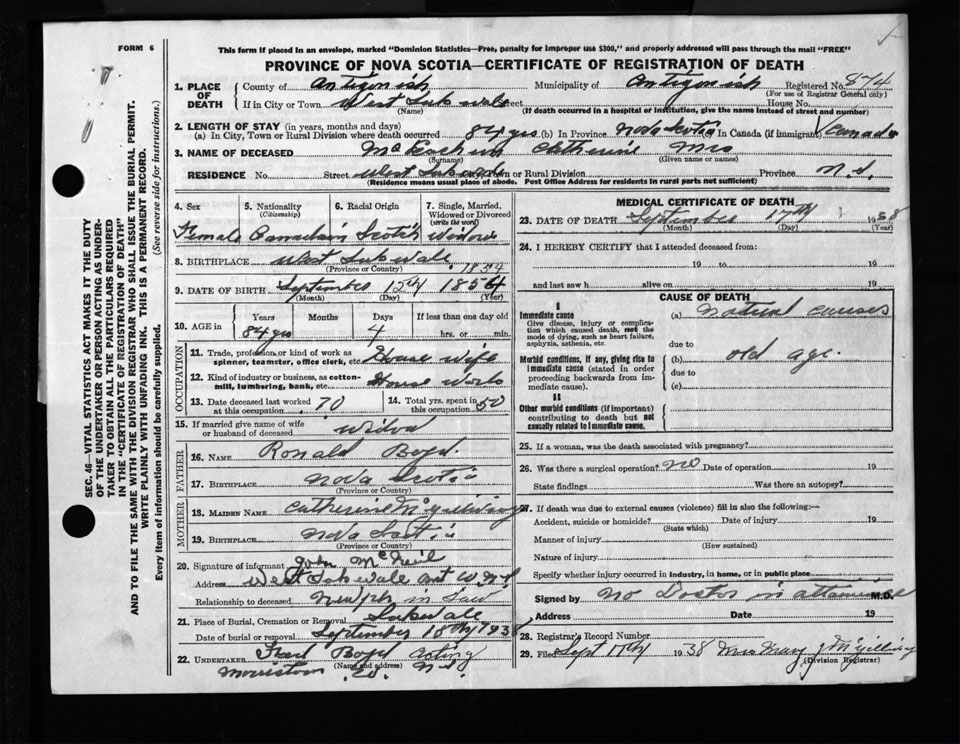 FORM 6
This form if placed in an envelope, marked "Dominion Statistics—Free, penalty for improper use $300," and properly addressed will pass through the mail "FREE"
PROVINCE OF NOVA SCOTIA—CERTIFICATE OF REGISTRATION OF DEATH
SEC. 46—VITAL STATISTICS ACT MAKES IT THE DUTY
OF THE UNDERTAKER OR PERSON ACTING AS UNDER-
TAKER TO OBTAIN ALL THE PARTICULARS REQUIRED
IN THE "CERTIFICATE OF REGISTRATION OF DEATH"
AND TO FILE THE SAME WITH THE DIVISION REGISTRAR WHO SHALL ISSUE THE BURIAL PERMIT.
WRITE PLAINLY WITH UNFADING INK. THIS IS A PERMANENT RECORD.
Every item of information should be carefully supplied. (See reverse side for instructions.)
1. PLACE OF DEATH County of Antigonish Municipality of Antigonish Registered No. 874
(For use of Registrar General only)
If in City or Town West Lakevale Street House No.
(Name) (If death occurred in a hospital or institution, give the name instead of street and number)
2. LENGTH OF STAY (in years, months and days)
(a) In City, Town or Rural Division where death occurred 84 yrs (b) In Province Nova Scotia In Canada (if immigrant) Canada
3. NAME OF DECEASED McEachern Catherine Mrs
(Surname) (Given name or names)
RESIDENCE No. Street West Lakevale Town or Rural Division Province N.S.
(Residence means usual place of abode. Post Office Address for residents in rural parts not sufficient)
4. Sex 5. Nationality (Citizenship) 6. Racial Origin 7. Single, Married, Widowed or Divorced (write the word)
Female Canadian Scotch Widow
8. BIRTHPLACE West Lakevale 1854
(Province or Country)
9. DATE OF BIRTH September 13th 1854
(Month) (Day) (Year)
10. AGE in Years Months Days If less than one day old
84 yrs 4 hrs. or min.
OCCUPATION
11. Trade, profession or kind of work as spinner, teamster, office clerk, etc. House wife
12. Kind of industry or business, as cotton-mill, lumbering, bank, etc. House Work
13. Date deceased last worked at this occupation 70 14. Total yrs. spent in this occupation 50
15. If married give name of wife or husband of deceased Widow
FATHER
16. NAME Ronald Boyd
17. BIRTHPLACE Nova Scotia
(Province or Country)
MOTHER
18. MAIDEN NAME Catherine McGillivray
19. BIRTHPLACE Nova Scotia
(Province or Country)
20. Signature of informant John McNeil
Address West Lakevale Ant
Relationship to deceased Newph in Law
21. Place of Burial, Cremation or Removal Lakevale
Date of burial or removal September 18th 1938
22. UNDERTAKER Fred Boyd Acting
(Name and address)
Morristown N.S.
MEDICAL CERTIFICATE OF DEATH
23. DATE OF DEATH September 17th 1938
(Month) (Day) (Year)
24. I HEREBY CERTIFY that I attended deceased from:
19 to 19
and last saw h alive on 19
CAUSE OF DEATH
I
Immediate cause
Give disease, injury or complication which caused death, not the mode of dying, such as heart failure, asphyxia, asthenia, etc.
(a) Natural causes
due to
Morbid conditions, if any, giving rise to immediate cause (stated in order proceeding backwards from immediate cause).
(b) old age.
due to
(c)
II
Other morbid conditions (if important) contributing to death but not causally related to immediate cause.
25. If a woman, was the death associated with pregnancy?
26. Was there a surgical operation? no Date of operation 19
State findings Was there an autopsy?
27. If death was due to external causes (violence) fill in also the following:—
Accident, suicide or homicide? Date of injury 19
(State which)
Manner of injury
(How sustained)
Nature of injury
Specify whether injury occurred in industry, in home, or in public place
Signed by No Doctor in M.D.
Address Date 19
28. Registrar's Record Number
29. Filed Sept 17th 1938 Mrs Mary J McGillivray
(Division Registrar)